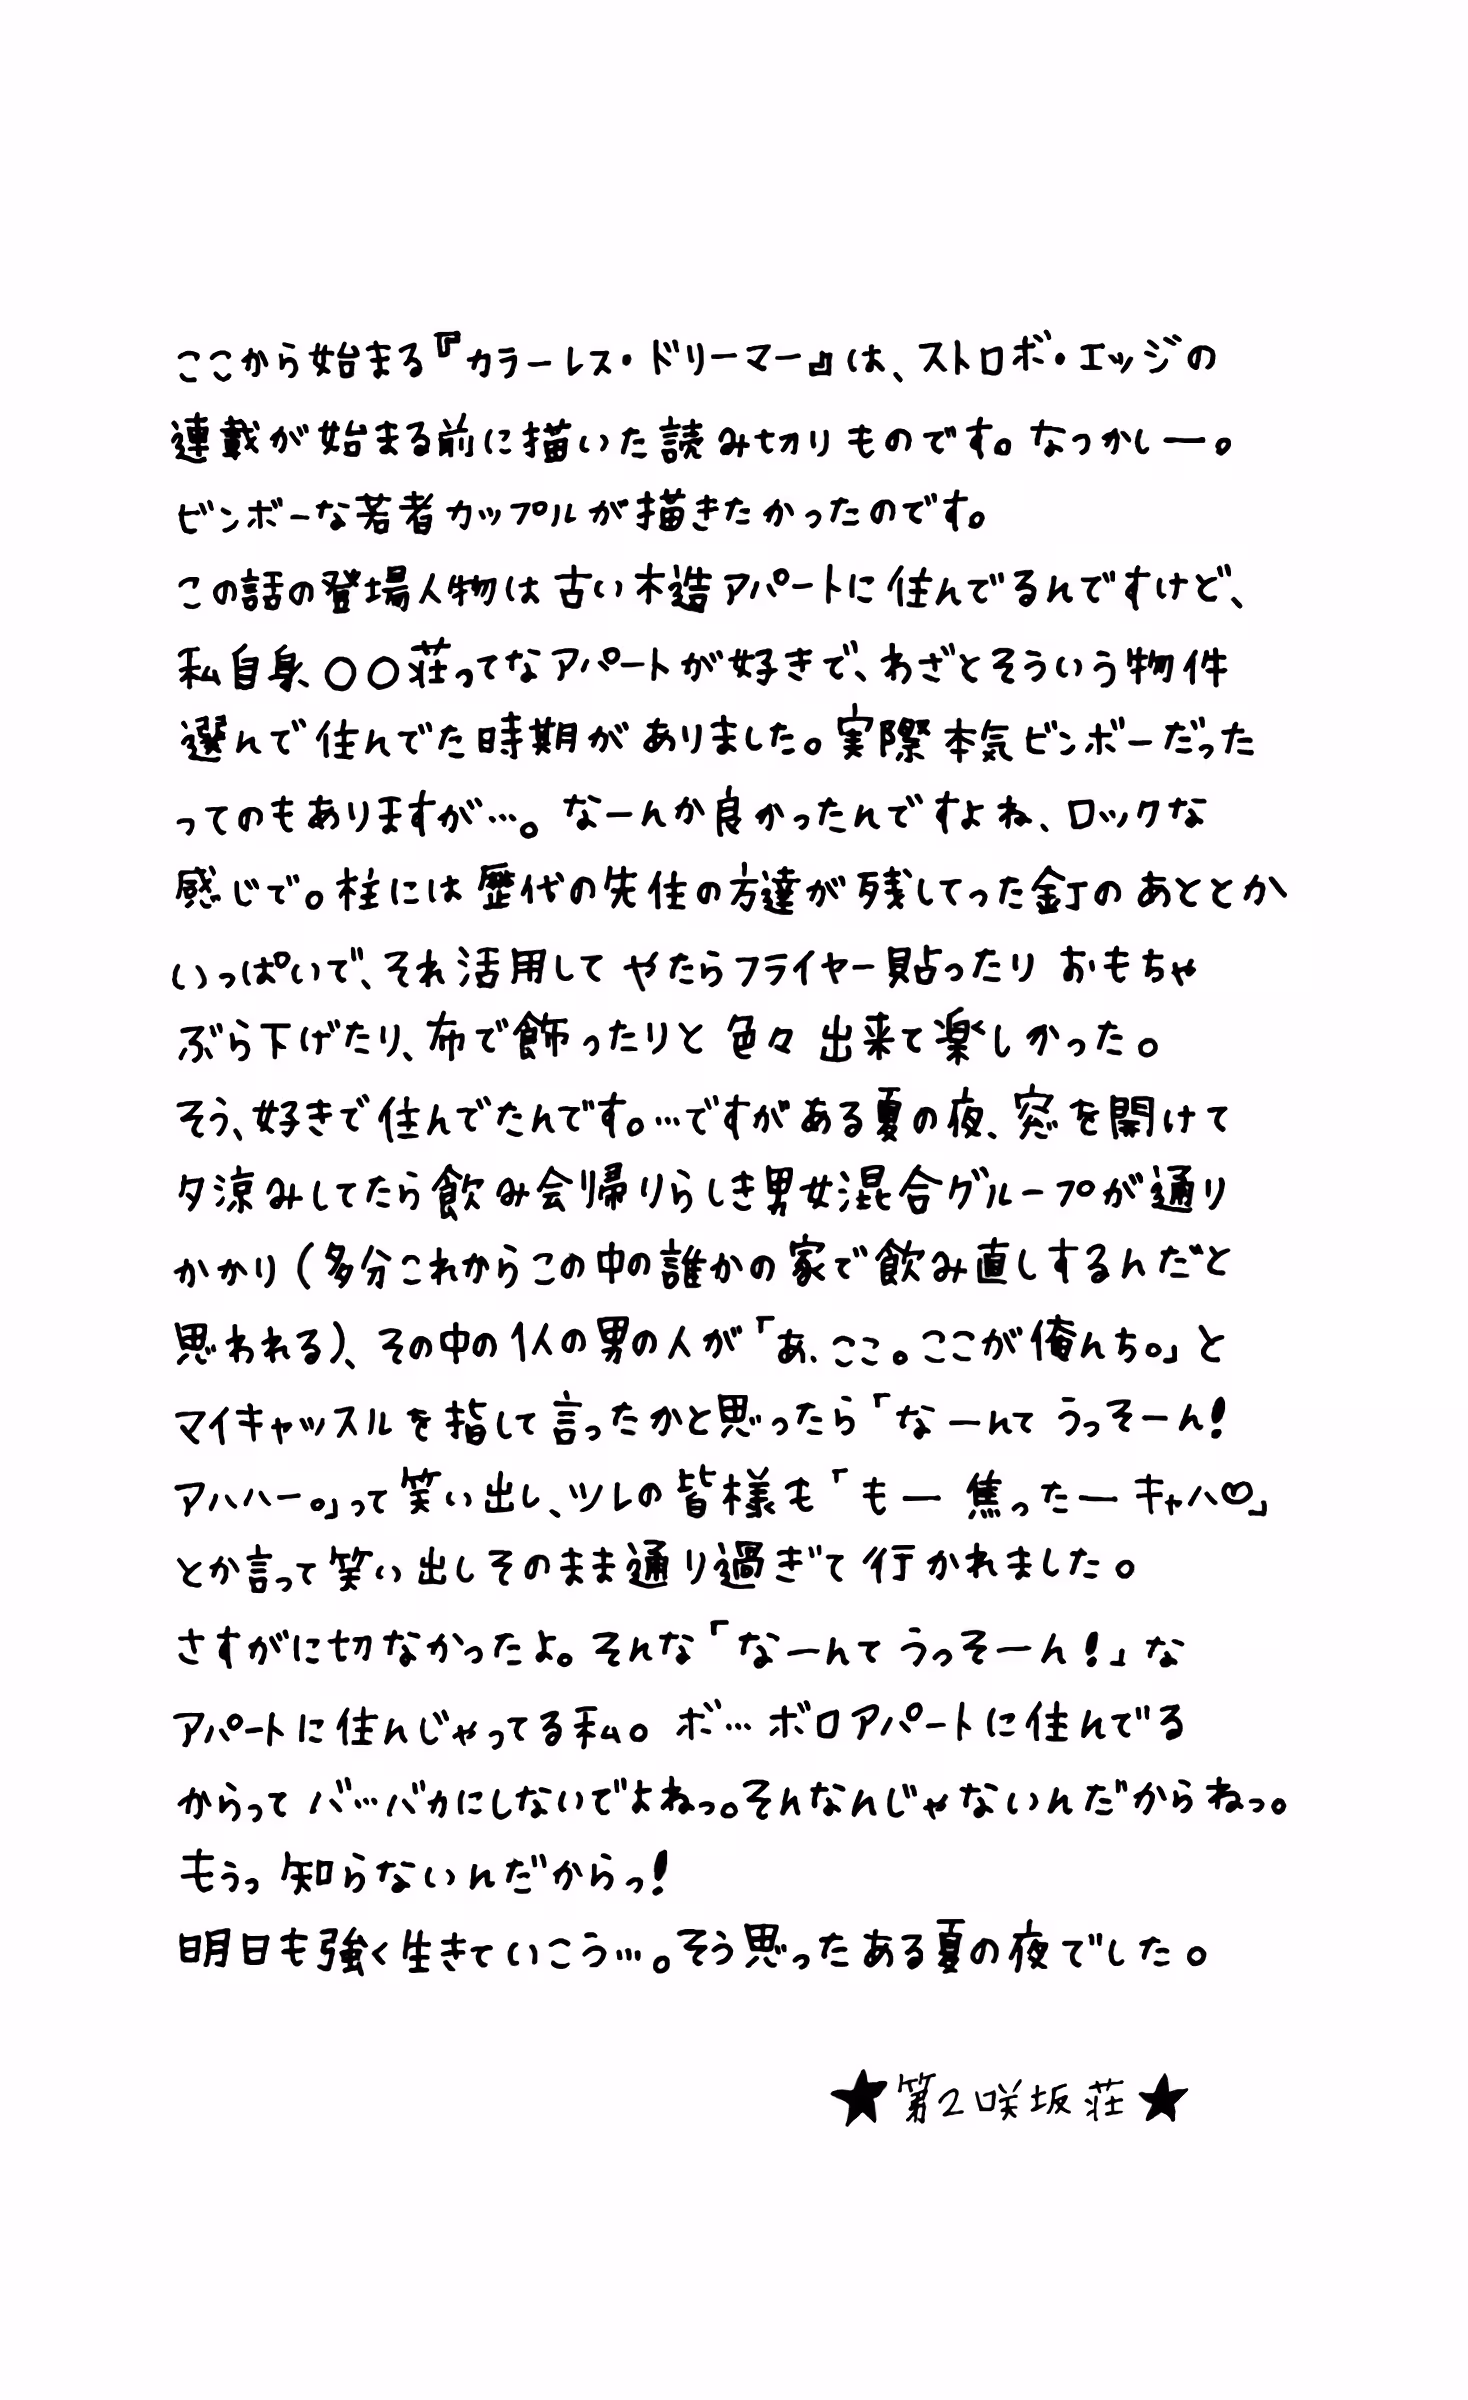 ここから始まる『カラーレス・ドリーマー』は、ストロボ・エッジの
連載が始まる前に描いた読み切りものです。なつかしー。
ビンボーな若者カップルが描きたかったのです。
この話の登場人物は古い木造アパートに住んでるんですけど、
私自身、〇〇荘ってなアパートが好きで、わざとそういう物件
選んで住んでた時期がありました。実際本気ビンボーだった
ってのもありますが…。なーんか良かったんですよね、ロックな
感じで。柱には歴代の先住の方達が残してった釘のあととか
いっぱいで、それ活用してやたらフライヤー貼ったりおもちゃ
ぶら下げたり、布で飾ったりと色々出来て楽しかった。
そう、好きで住んでたんです。…ですがある夏の夜、窓を開けて
夕涼みしてたら飲み会帰りらしき男女混合グループが通り
かかり(多分これからこの中の誰かの家で飲み直しするんだと
思われる)、その中の1人の男の人が「あ、ここ。ここが俺んち。」と
マイキャッスルを指して言ったかと思ったら「なーんてうっそーん!
アハハー。」って笑い出し、ツレの皆様も「もー焦ったーキャハ♡」
とか言って笑い出しそのまま通り過ぎて行かれました。
さすがに切なかったよ。そんな「なーんてうっそーん!」な
アパートに住んじゃってる私。ボ…ボロアパートに住んでる
からってバ…バカにしないでよねっ。そんなんじゃないんだからねっ。
もうっ知らないんだからっ!
明日も強く生きていこう…。そう思ったある夏の夜でした。
★第2咲坂荘★